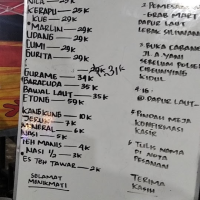 NILA — 25K
KERAPU — 25K
KUE — 29K
MARLIN — 29K
UDANG — 29K
CUMI — 29K
GURITA — 29K
31K
GURAME — 34K
BARACUDA — 35K
BAWAL LAUT — 35K
ETONG — 59K
KANGKUNG — 10K
JERUK — 7K
MINERAL — 6K
NASI — 5K
TEH MANIS — 4K
NASI 1/2 — 3K
ES TEH TAWAR — 2K
SELAMAT
MENIKMATI
2 PEMESANAN
- GRAB MART
DAPUR LAUT
LEBAK SILIWANGI
3 BUKA CABANG
JL A. YANI
SEBELUM PULSE
CIBEUNYING
KIDUL
4 IG :
@ DAPUR LAUT
5 PINDAH MEJA
KONFIRMASI
KASIR
6 TULIS NOMA
DI NOTA
PESANAN
TERIMA
KASIH